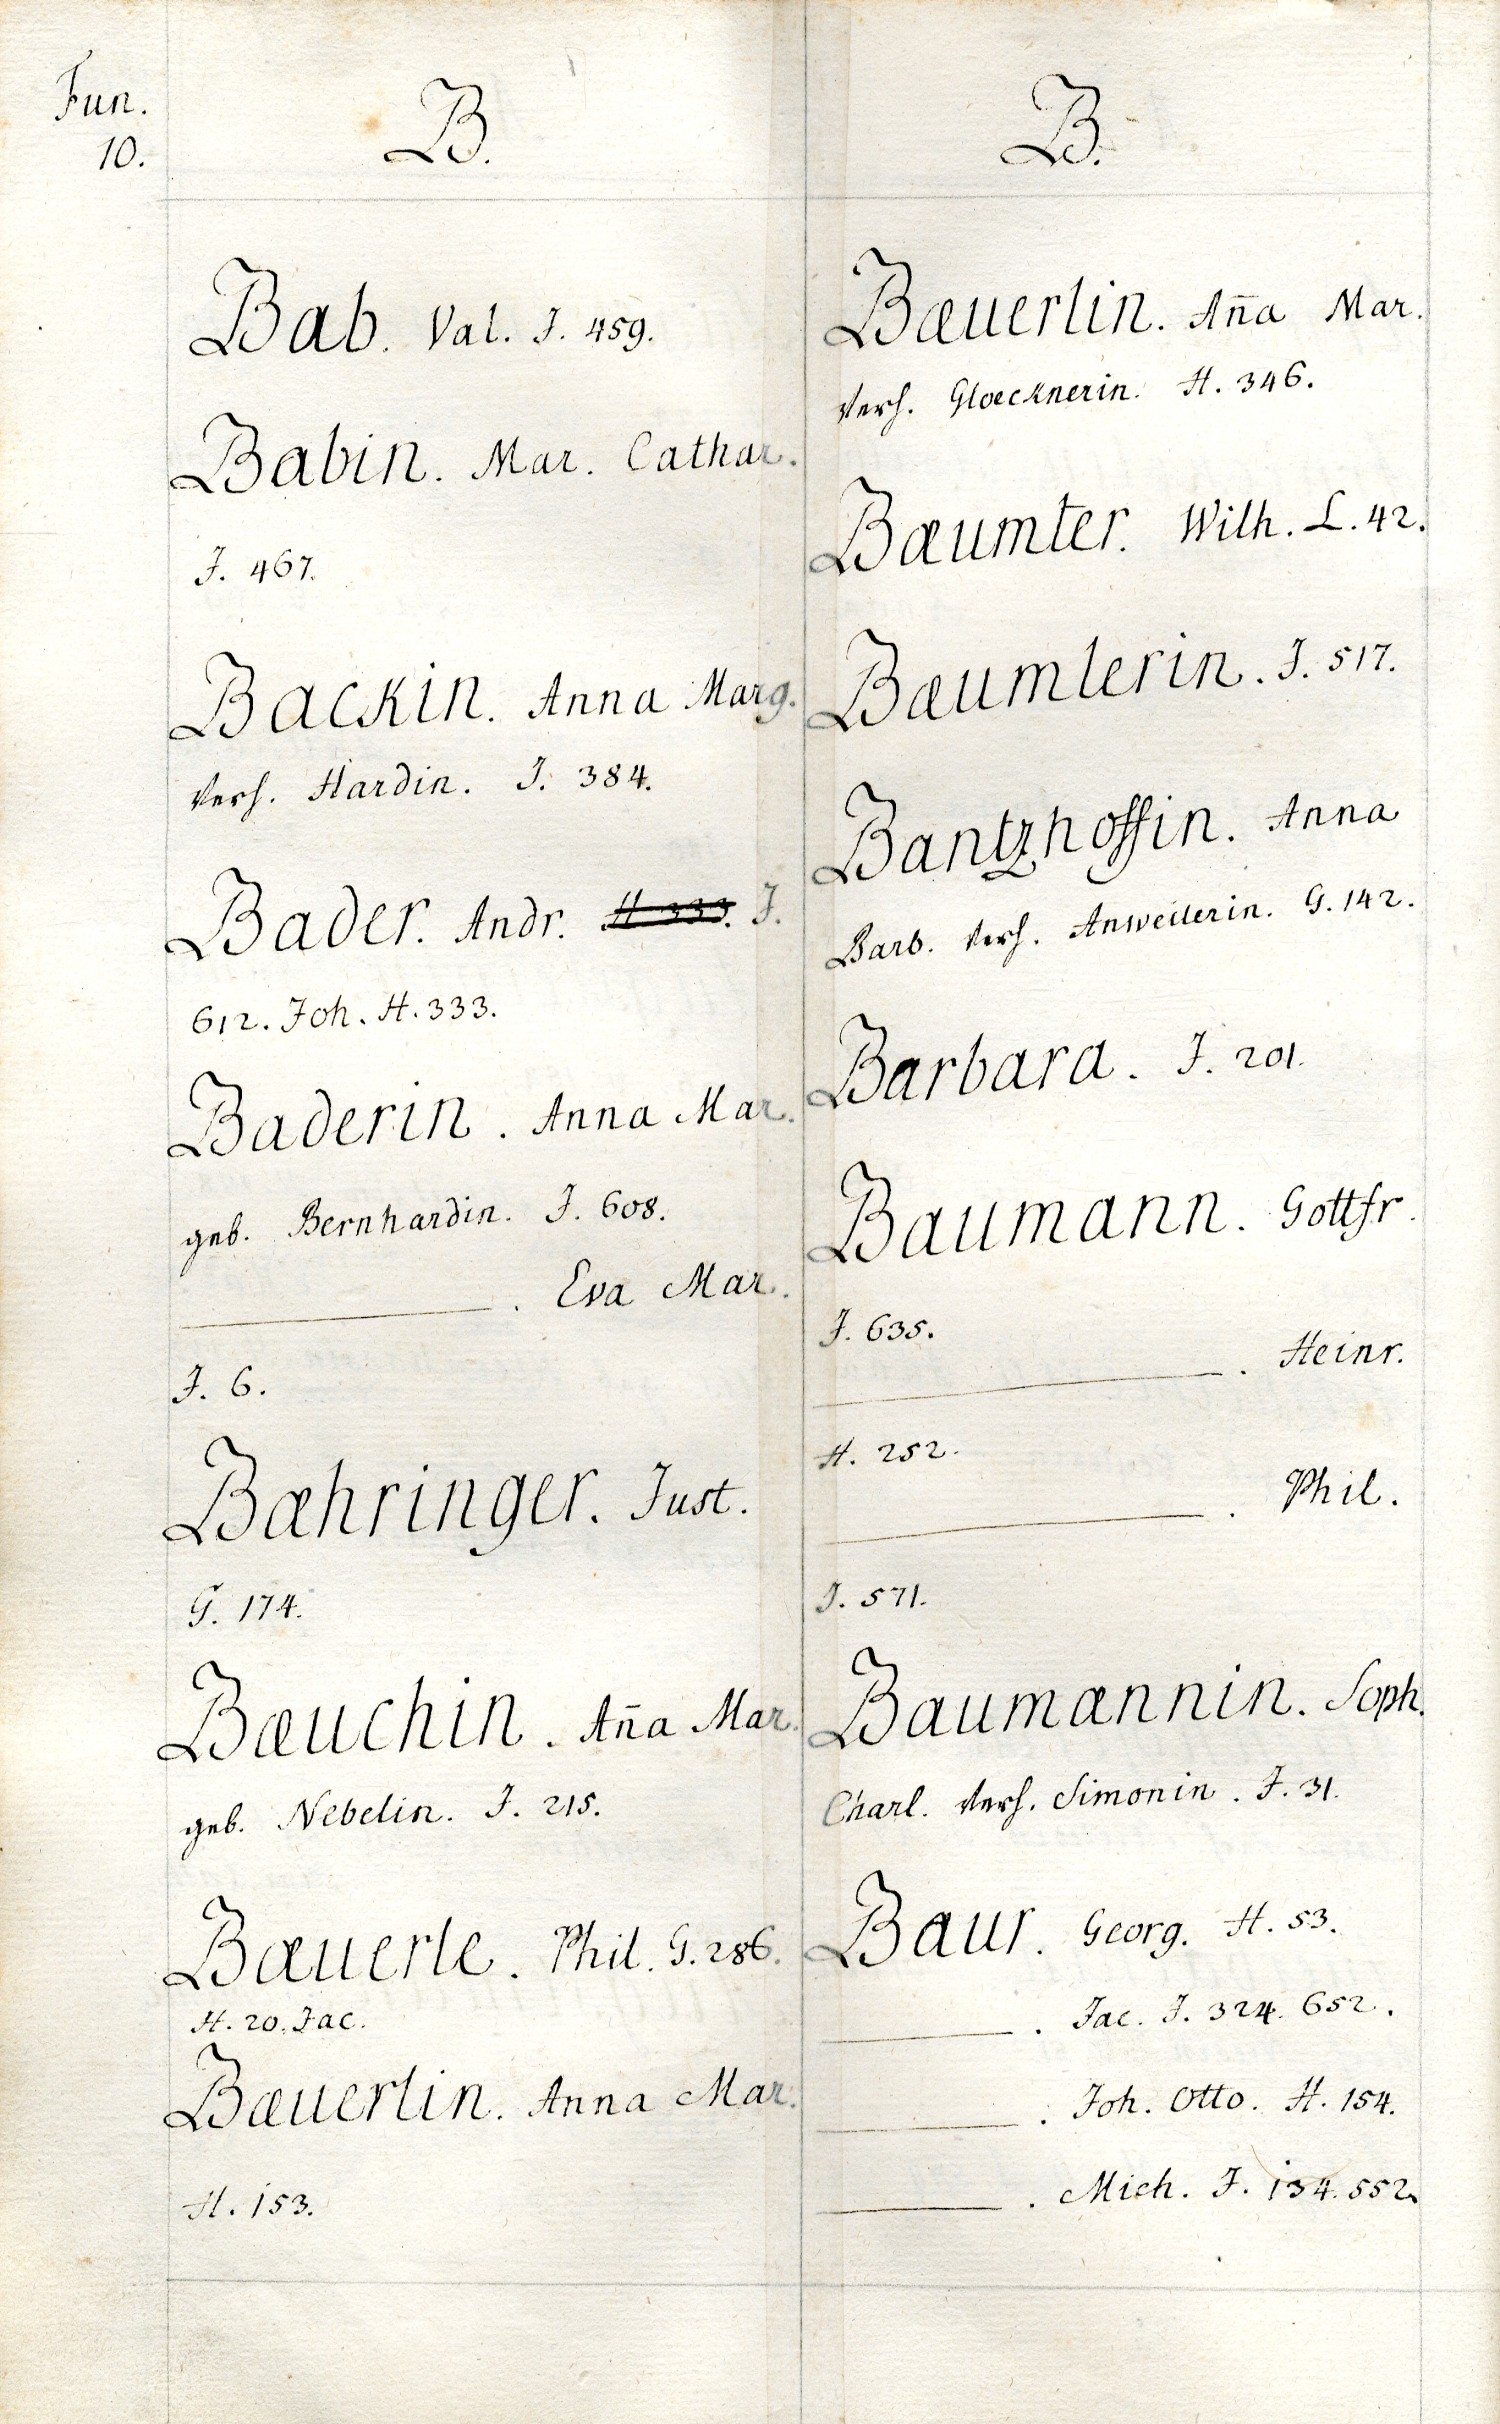 Fun.
10.
B.
Bab. Val. J. 459.
Babin. Mar. Cathar.
J. 467.
Backin. Anna Marg.
verh. Hardin. J. 384.
Bader. Andr. H 333. J.
612. Joh. H. 333.
Baderin. Anna Mar.
geb. Bernhardin. J. 608.
———. Eva Mar.
J. 6.
Bæhringer. Just.
G. 174.
Bæuchin. An̄a Mar.
geb. Nebelin. J. 215.
Bæuerle. Phil. G. 286.
H. 20. Jac.
Bæuerlin. Anna Mar.
H. 153.
B.
Bæuerlin. An̄a Mar.
verh. Gloecknerin. H. 346.
Bæumler. Wilh. L. 42.
Bæumlerin. J. 517.
Bantzhoffin. Anna
Barb. verh. Anweilerin. G. 142.
Barbara. J. 201.
Baumann. Gottfr.
J. 635.
———. Heinr.
H. 252.
———. Phil.
J. 571.
Baumænnin. Soph.
Charl. verh. Simonin. J. 31.
Baur. Georg. H. 53.
———. Jac. J. 324. 652.
———. Joh. Otto. H. 154.
———. Mich. J. 134. 552.